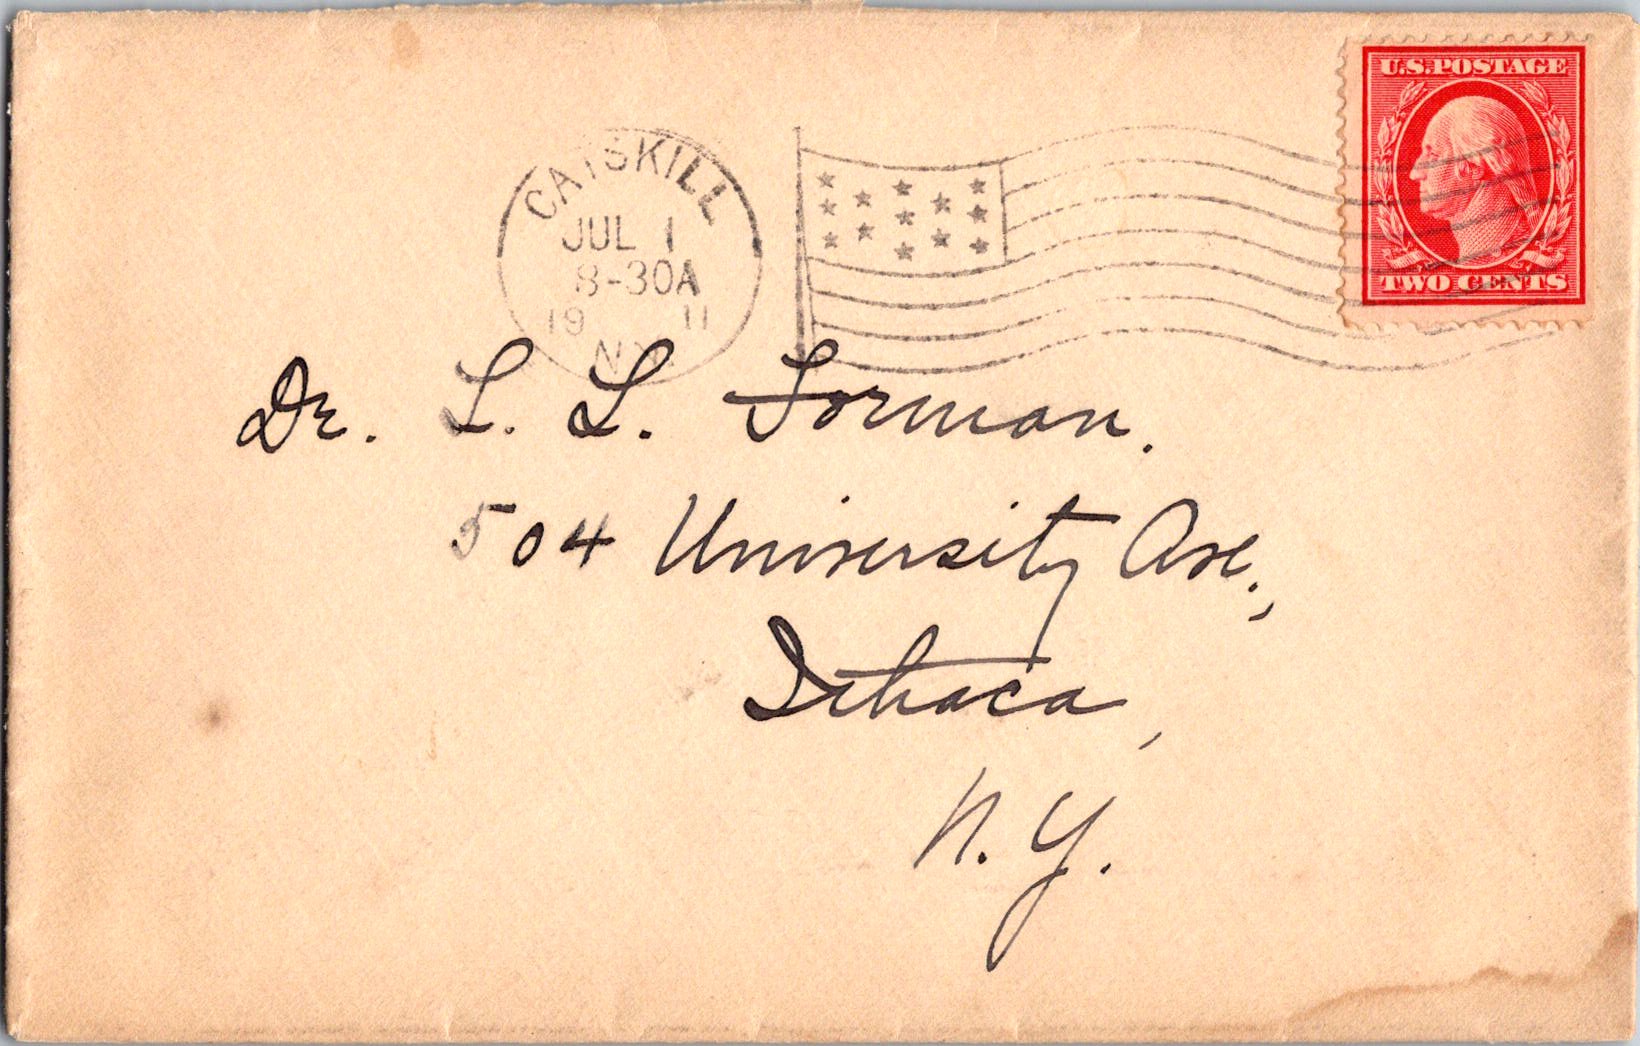 U.S. POSTAGE
TWO CENTS
CATSKILL
JUL 1
8-30A
19 11
N.Y.
Dr. L. L. Forman.
504 University Ave.,
Ithaca,
N. Y.